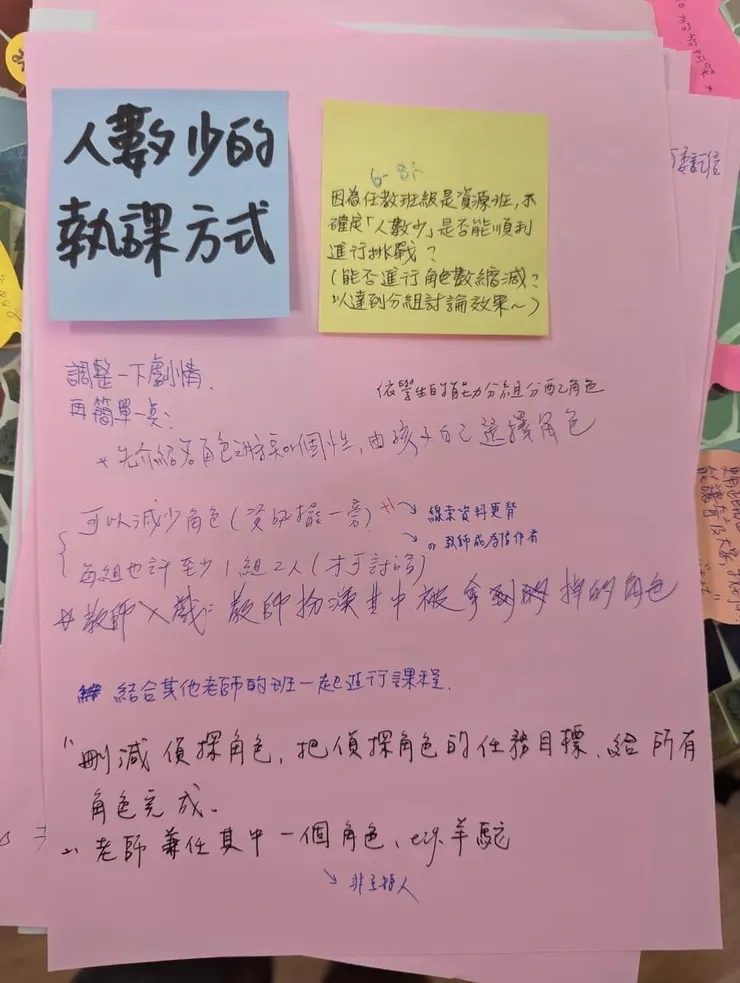 人數少的
執課方式
6-8人
因為任教班級是資源班,不
確定「人數少」是否能順利
進行挑戰?
(能否進行角色數縮減?
以達到分組討論效果~)
調整一下劇情.
再簡單一點:
依學生的能力分組分配角色
先介紹各角色之特色和個性,由孩子自己選擇角色
可以減少角色(資訊擺一旁)
線索資料更替
教師成為操作者
每組也許至少1組2人(才可討論)
教師入戲:教師扮演其中被拿掉的角色
結合其他老師的班一起進行課程.
1、刪減偵探角色,把偵探角色的任務目標、給所有
角色完成.
2、老師兼任其中一個角色、e.g.羊駝
非主持人